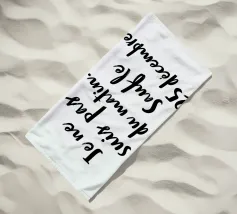 Je ne
suis pas
du matin.
Sauf le
25 décembre